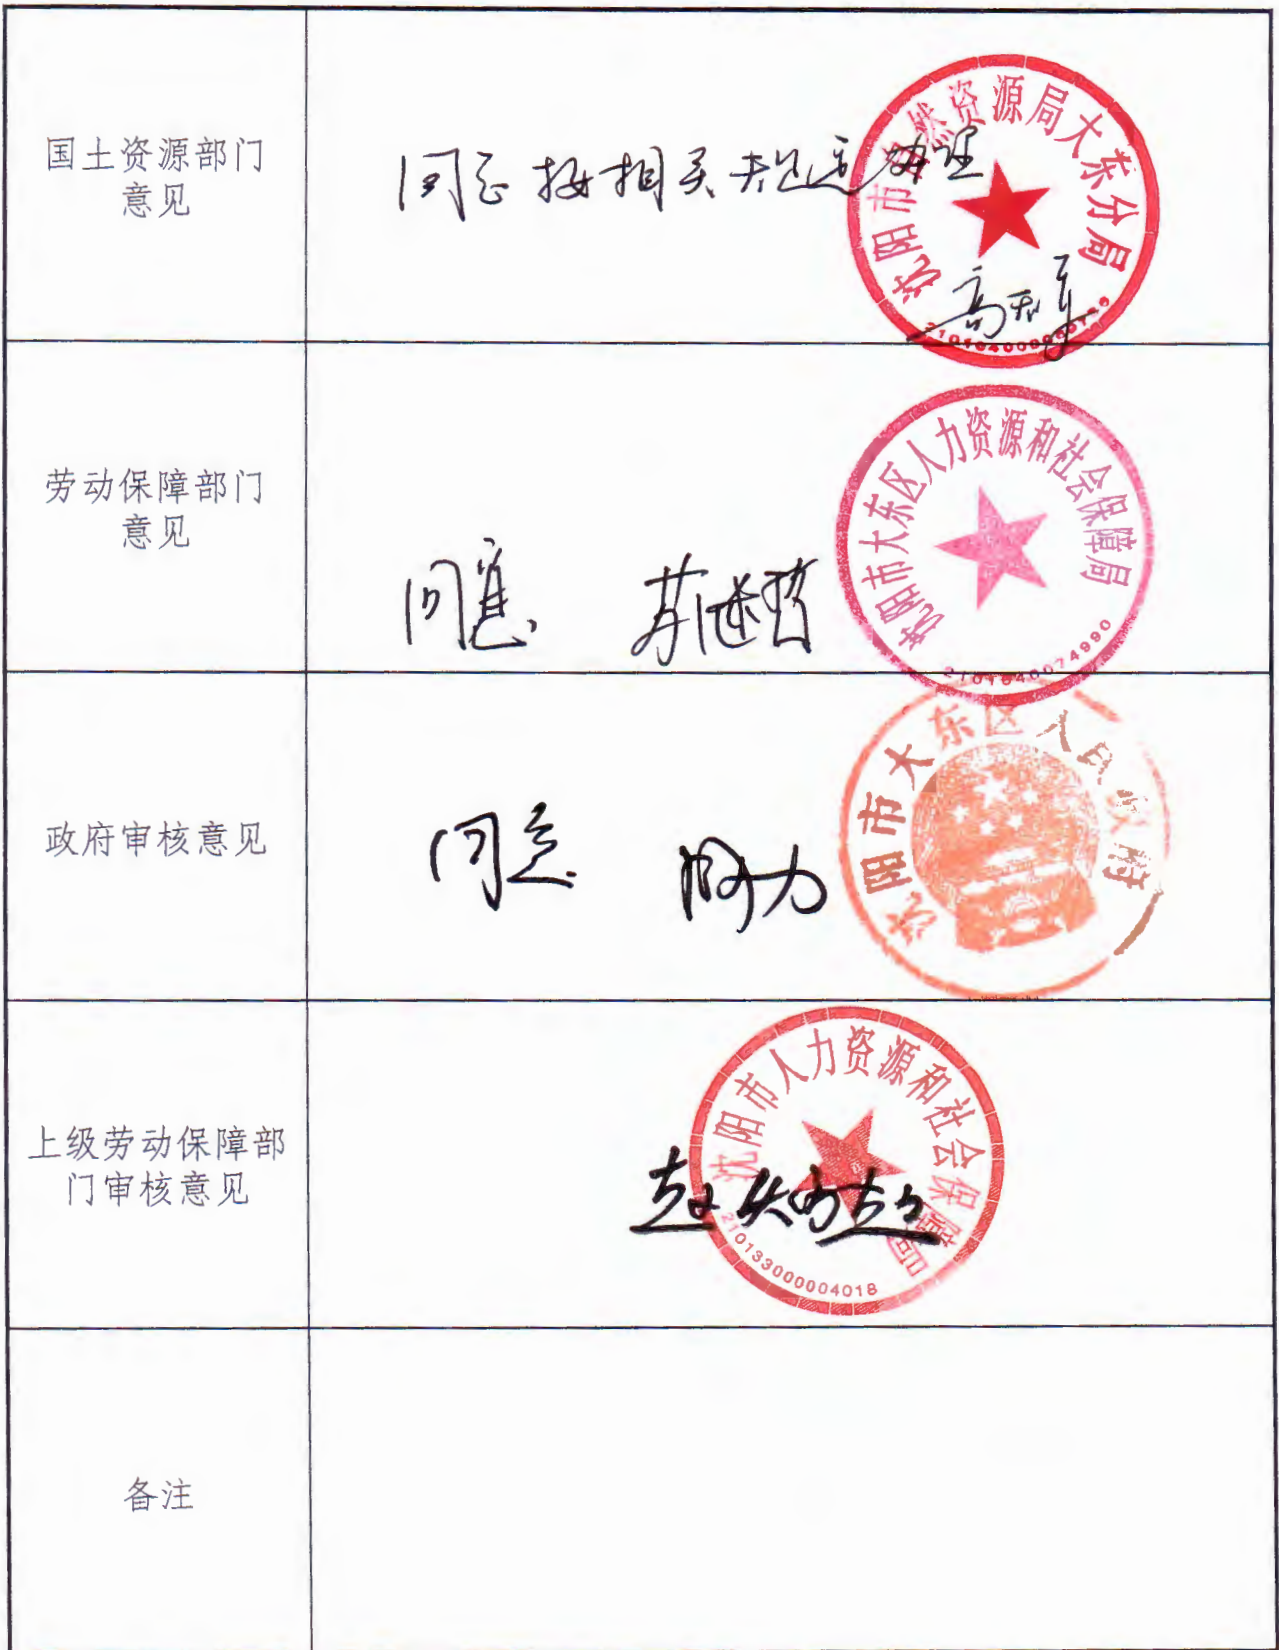 国土资源部门
意见
同意按相关规定办理
沈阳市自然资源局大东分局
劳动保障部门
意见
同意
沈阳市大东区人力资源和社会保障局
2101040074990
政府审核意见
同意
沈阳市大东区人民政府
上级劳动保障部
门审核意见
沈阳市人力资源和社会保障局
2101330000004018
备注